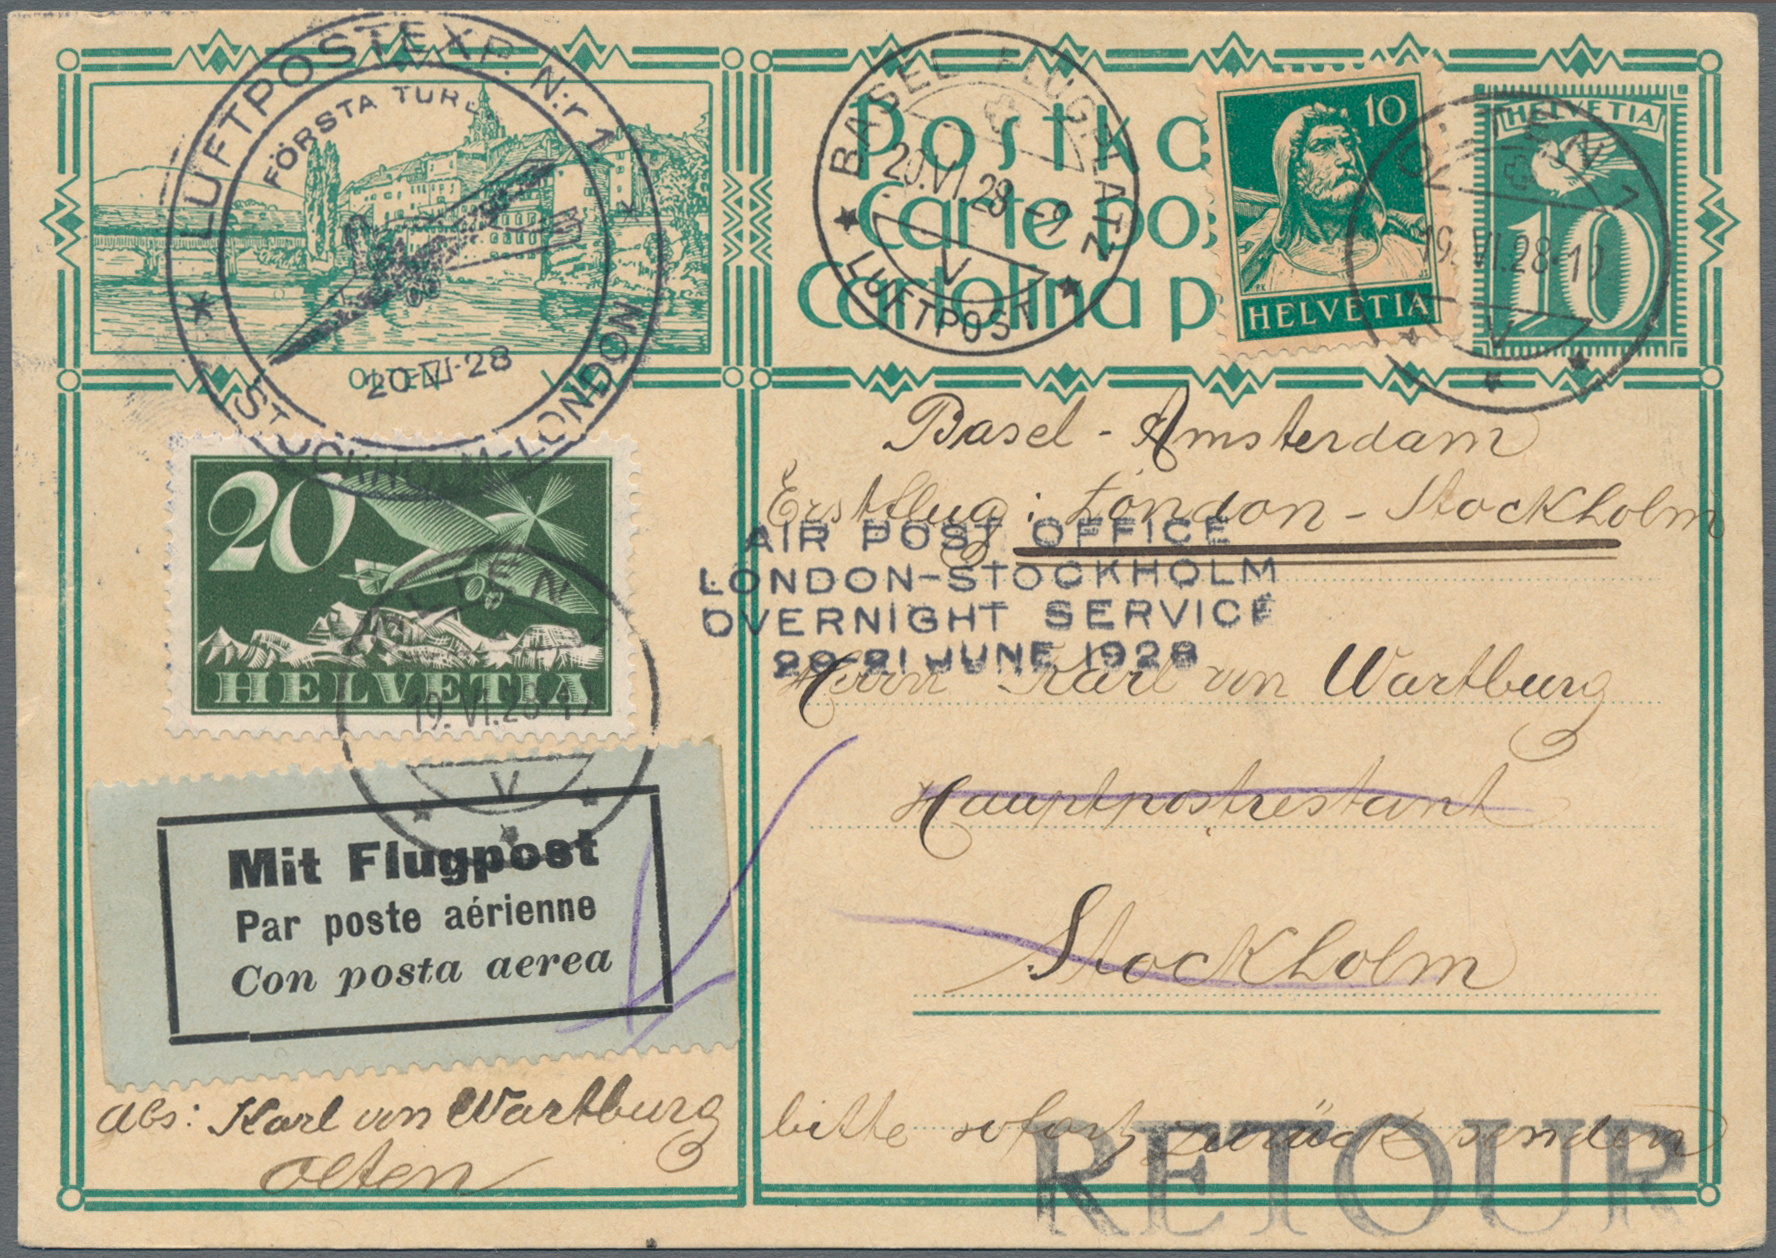 LUFTPOSTEXP. N:r 1
FÖRSTA TUR
20·VI·28
STOCKHOLM-LONDON
OLTEN
BASEL FLUGPLATZ
20.VI.28-9
V
LUFTPOST
Postka
Carte pos
Cartolina p
10
HELVETIA
OLTEN 1
19.VI.28-10
V
HELVETIA
10
Basel - Amsterdam
Erstflug: London - Stockholm
AIR POST OFFICE
LONDON-STOCKHOLM
OVERNIGHT SERVICE
20-21 JUNE 1928
Herrn Karl von Wartburg
Hauptpostrestant
Stockholm
20
HELVETIA
OLTEN
19.VI.28
V
Mit Flugpost
Par poste aérienne
Con posta aerea
abs: Karl von Wartburg
Olten
bitte sofort zurück senden
RETOUR